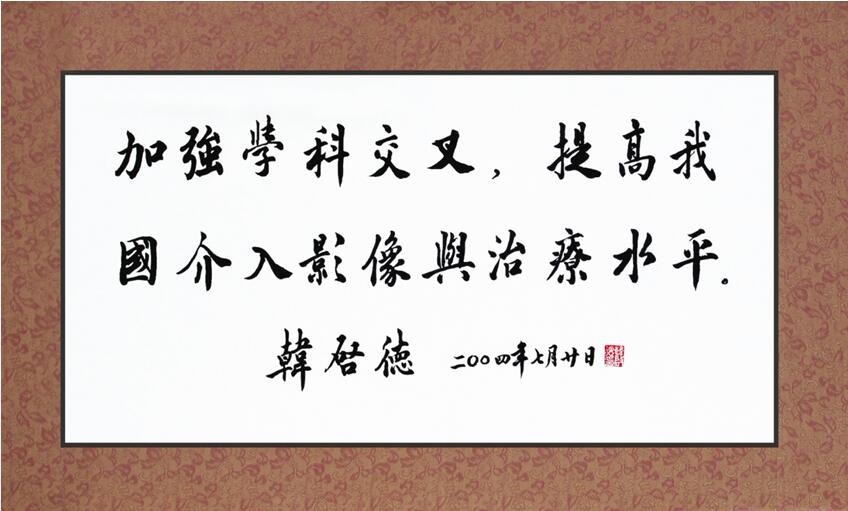 加強學科交叉，提高我
國介入影像與治療水平。
韓啓德 二〇〇四年七月廿日